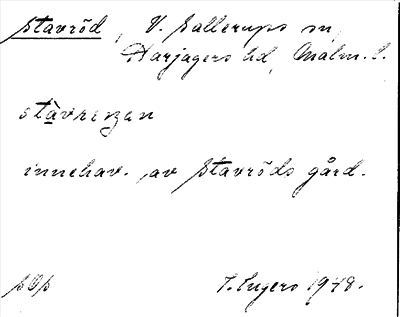 Stavröd, V. Sallerups sn,
Harjagers hd, Malm. l.
stàvrenzan
innehav. av Stavröds gård.
SOp T. Engers 1948.